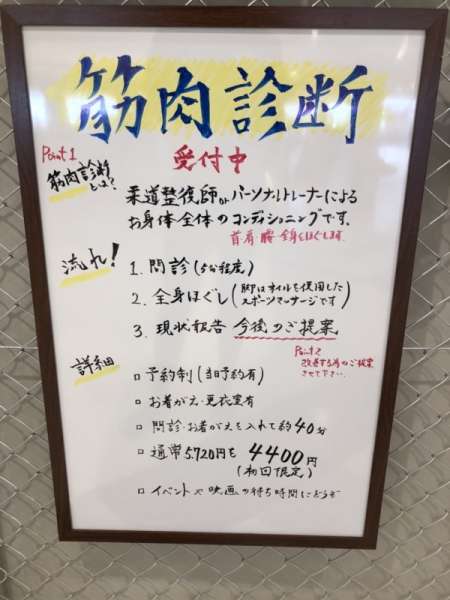 筋肉診断
受付中
Point 1
筋肉診断とは?
柔道整復師orパーソナルトレーナーによる
お身体全体のコンディショニングです。
首・肩・腰・全身をほぐします。
流れ!
1. 問診(5分程度)
2. 全身ほぐし(脚はオイルを使用したスポーツマッサージです)
3. 現状報告 今後のご提案
Point 2
改善する為のご提案
させて下さい。
詳細
□ 予約制(当日予約有)
□ お着がえ・更衣室有
□ 問診・お着がえを入れて約40分
□ 通常5,720円を 4400円
(初回限定)
□ イベントや映画の待ち時間にどうぞ